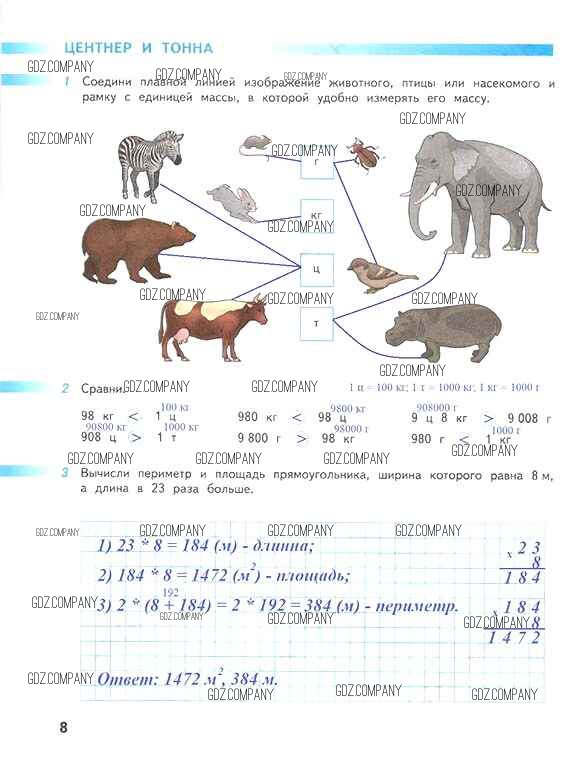 ЦЕНТНЕР И ТОННА
GDZ.COMPANY
GDZ.COMPANY
GDZ.COMPANY
1 Соедини плавной линией изображение животного, птицы или насекомого и
рамку с единицей массы, в которой удобно измерять его массу.
GDZ.COMPANY
GDZ.COMPANY
GDZ.COMPANY
г
GDZ.COMPANY
GDZ.COMPANY
кг
GDZ.COMPANY
ц
GDZ.COMPANY
GDZ.COMPANY
GDZ.COMPANY
GDZ.COMPANY
т
GDZ.COMPANY
2 Сравни.
GDZ.COMPANY
GDZ.COMPANY
1 ц = 100 кг; 1 т = 1000 кг; 1 кг = 1000 г
100 кг 9800 кг 908000 г
98 кг < 1 ц 980 кг < 98 ц 9 ц 8 кг > 9 008 г
90800 кг 1000 кг 98000 г 1000 г
908 ц > 1 т 9 800 г > 98 кг 980 г < 1 кг
GDZ.COMPANY
GDZ.COMPANY
GDZ.COMPANY
GDZ.COMPANY
3 Вычисли периметр и площадь прямоугольника, ширина которого равна 8 м,
а длина в 23 раза больше.
GDZ.COMPANY
GDZ.COMPANY
GDZ.COMPANY
GDZ.COMPANY
1) 23 * 8 = 184 (м) - длинна;
x 2 3
8
1 8 4
2) 184 * 8 = 1472 (м²) - площадь;
192
3) 2 * (8 + 184) = 2 * 192 = 384 (м) - периметр.
x 1 8 4
8
1 4 7 2
GDZ.COMPANY
GDZ.COMPANY
GDZ.COMPANY
GDZ.COMPANY
Ответ: 1472 м², 384 м.
GDZ.COMPANY
GDZ.COMPANY
GDZ.COMPANY
GDZ.COMPANY
8